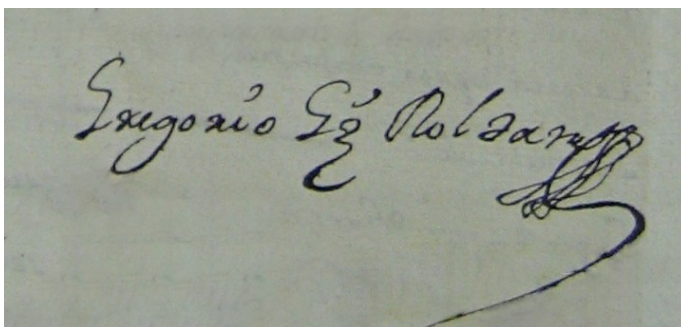 Gregorio Gz Roldan